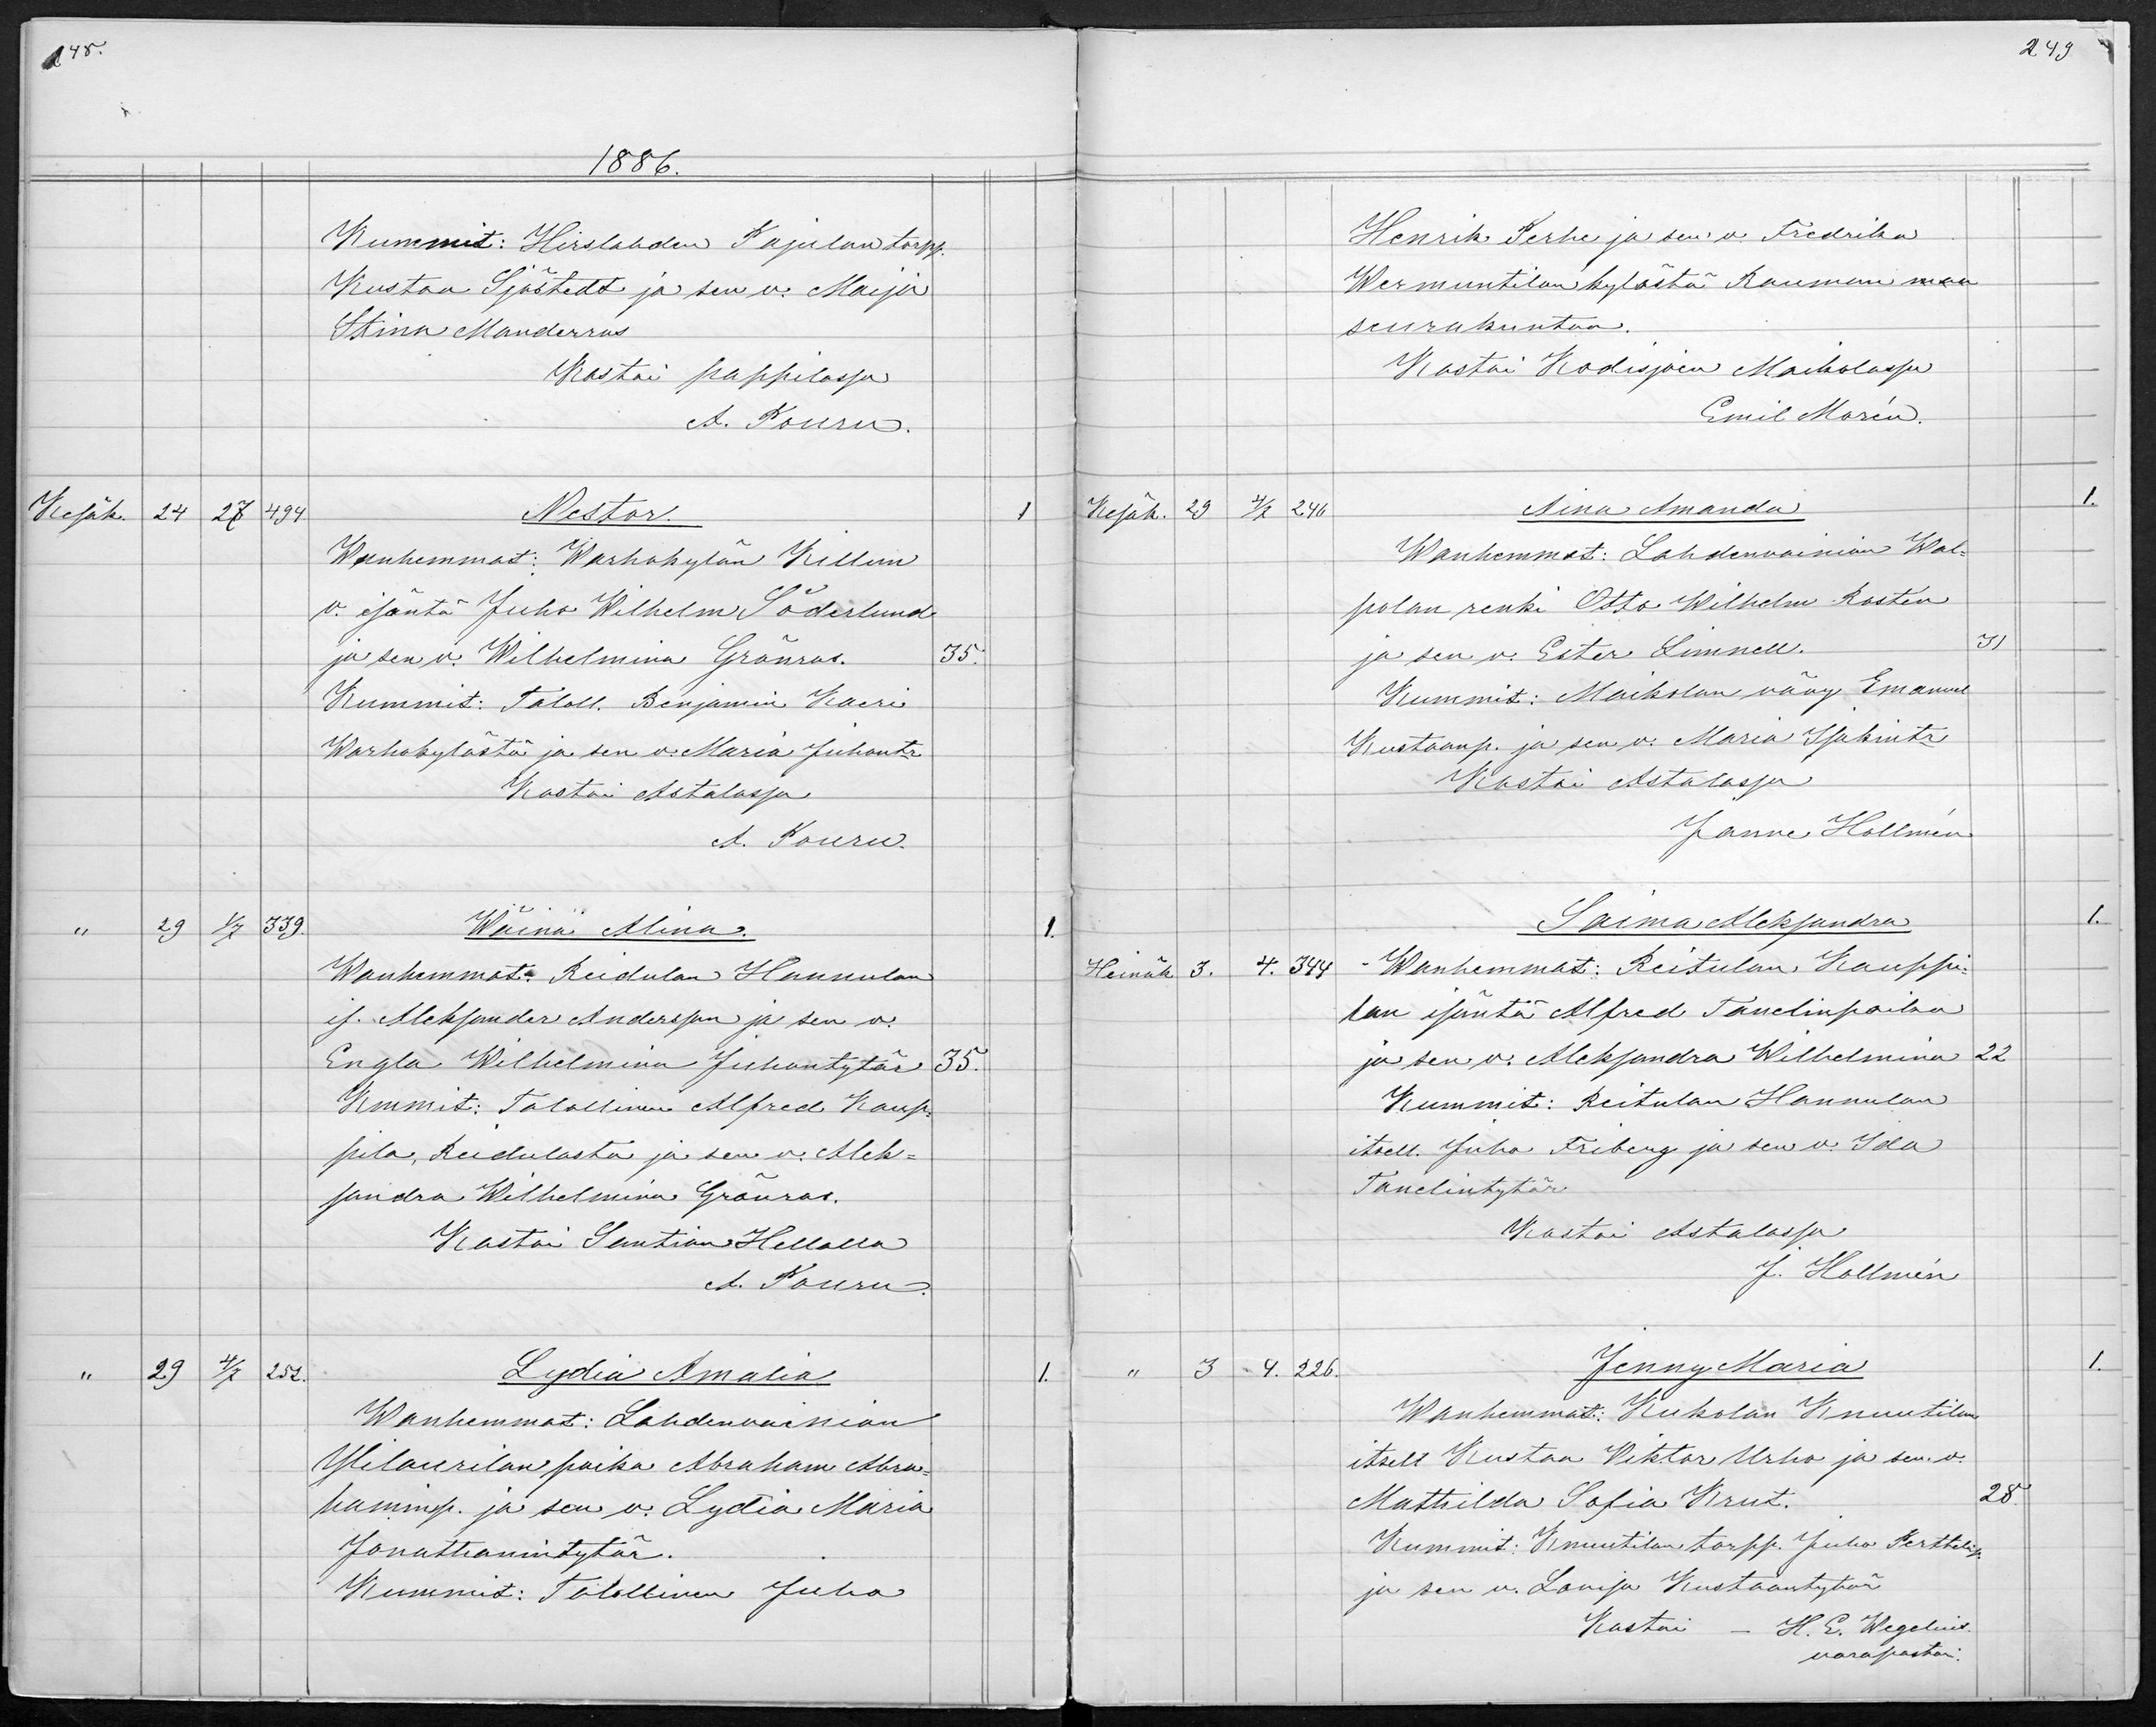 248.
1886.
Kummit: Hirslahden Pajulan torpp.
Kustaa Sjöstedt ja sen v. Maija
Stina Manderras
Kastoi pappilassa
A. Pouru.
Kesäk. 24 27 494 Nestor. 1
Wanhemmat: Warhokylän Killun
v. isäntä Juho Wilhelm Söderlund
ja sen v. Wilhelmina Grönros. 35.
Kummit: Taloll. Benjamin Kaeri
Warhokylästä ja sen v. Maria Juhontr
Kastoi Astalassa
A. Pouru.
" 29 1/7 339 Wäinä Alina. 1.
Wanhemmat: Reidulan Hannulan
is. Aleksander Andersson ja sen v.
Engla Wilhelmina Juhontytär 35.
Kmmit: Talollinen Alfred Kaup-
pila, Reidulasta ja sen v. Alek-
sandra Wilhelmina Grönros.
Kastoi Santion Hellalla
A. Pouru.
" 29 4/7 252. Lydia Amalia 1.
Wanhemmat: Lahdenvainion
Ylilaurilan poika Abraham Abra-
haminp. ja sen v. Lydia Maria
Jonathanintytär.
Kummit: Talollinen Juho
249
Henrik Perhe ja sen v. Fredrika
Wermuntilan kylästä Rauman maa
seurakuntaa.
Kastoi Kodisjoen Maikolassa
Emil Morén.
Kesäk. 29 4/7 246 Aina Amanda 1.
Wanhemmat: Lahdenvainion Wal-
polan renki Otto Wilhelm Rostén
ja sen v. Ester Limnell. 31
Kummit: Maikolan vävy Emanuel
Kustaanp. ja sen v. Maria Isakintr
Kastoi Astalassa
Janne Hollmén
Saima Aleksandra 1.
Heinäk 3. 4. 344 - Wanhemmat: Reitulan Kauppi-
lan isäntä Alfred Tanelinpoika
ja sen v. Aleksandra Wilhelmina 22
Kummit: Reitulan Hannulan
itsell. Juho Friberg ja sen v. Ida
Tanelintytär
Kastoi Astalassa
J. Hollmén
" 3 4. 226. Jenny Maria 1.
Wanhemmat: Kukolan Knuutilan
itsell Kustaa Viktor Urho ja sen v.
Mathilda Sofia Krut. 28.
Kummit: Knuutilan torpp. Juho Perttelip.
ja sen v. Lovisa Kustaantytär
Kastoi — H. E. Wegelius.
varapastori.